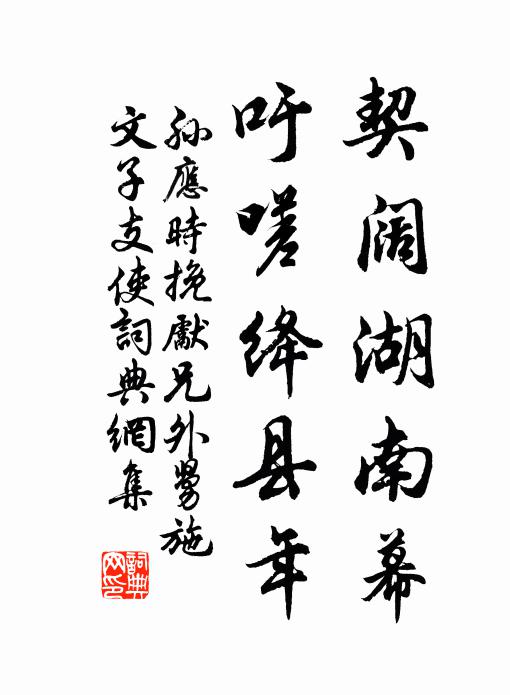 契阔湖南幕
吁嗟绛县年
孙應時挽獻兄外舅施
文子支使詞典網集
詞典網印